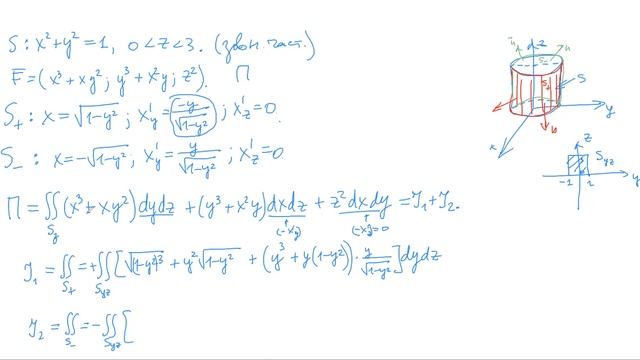 S: x²+y²=1, 0<z<3. (звон. част.)
F̅=(x³+xy²; y³+x²y; z²). П
S₊: x=√(1-y²); x'_y=(-y/√(1-y²)); x'_z=0.
S₋: x=-√(1-y²), x'_y=y/√(1-y²); x'_z=0
П=∬(x³+xy²)dydz+(y³+x²y)dxdz+z²dxdy=J₁+J₂.
(-x'_y) (-x'_z)=0
J₁=∬_{S₊}=+∬_{S_{yz}}[√(1-y²)³+y²√(1-y²)+(y³+y(1-y²))·y/√(1-y²)]dydz
J₂=∬_{S₋}=-∬_{S_{yz}}[
z
n
n
S
S₊
y
x
n
z
S_{yz}
-1 1
y